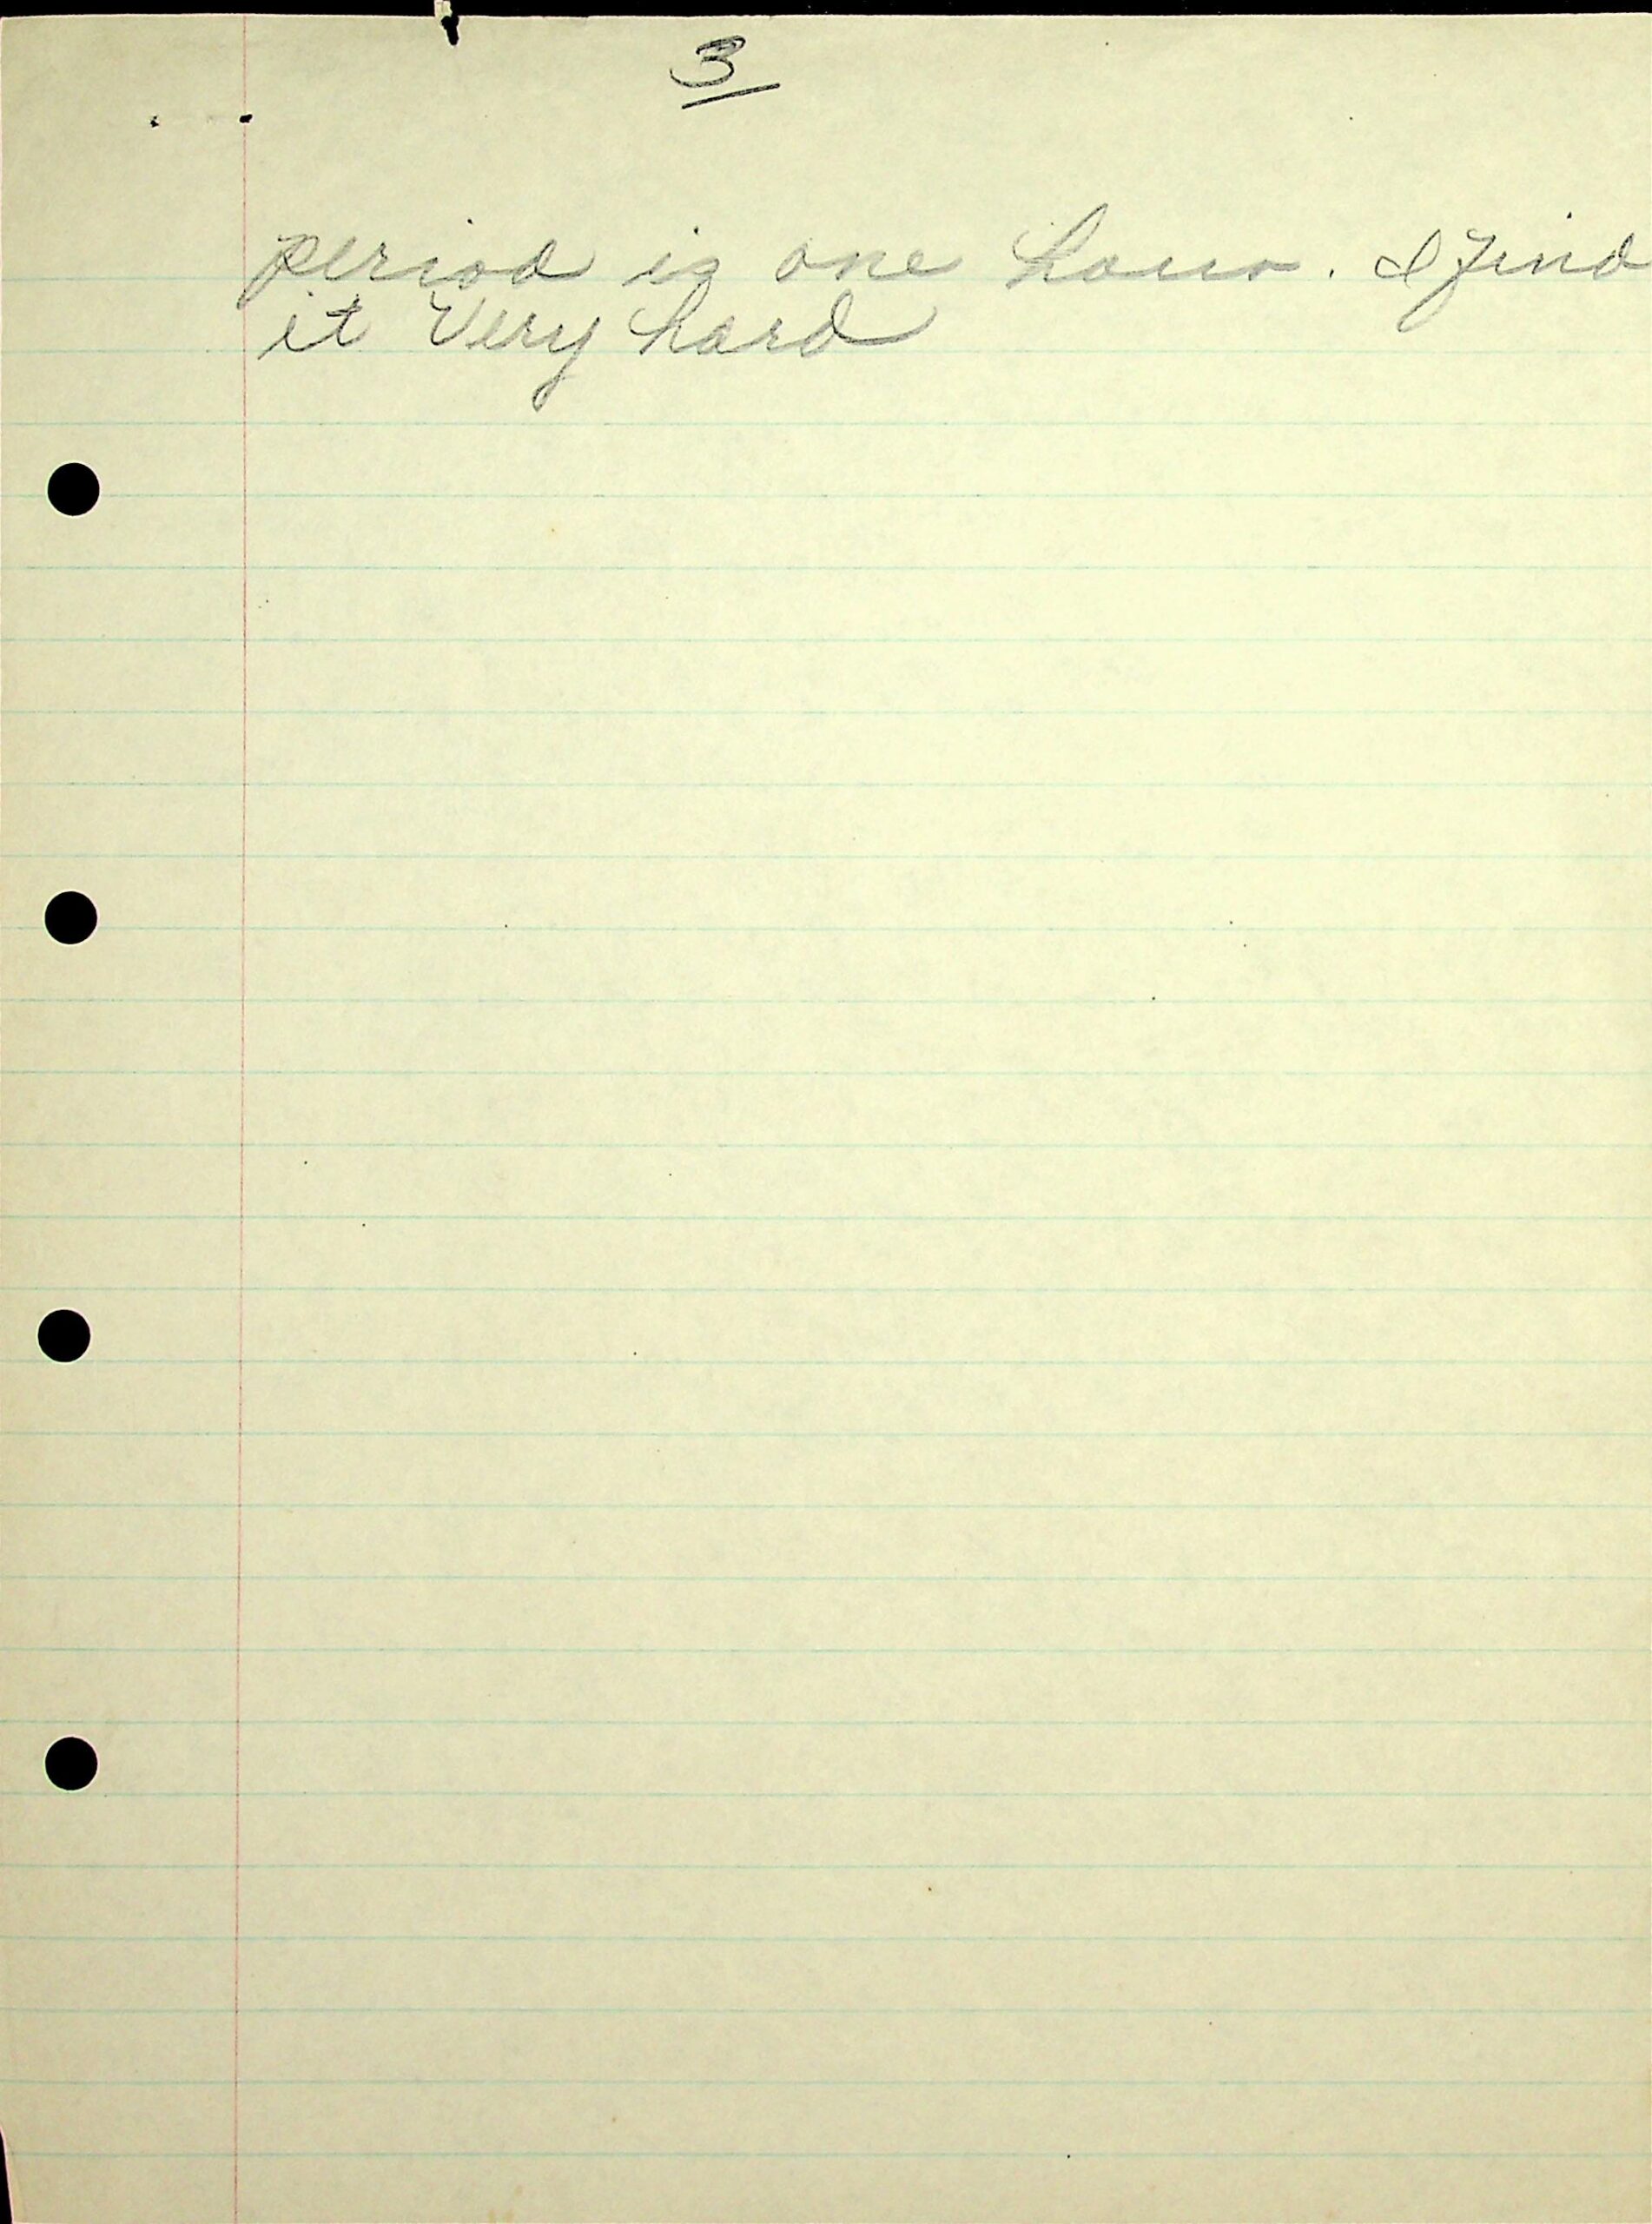 3
period is one hour. I find
it Very hard